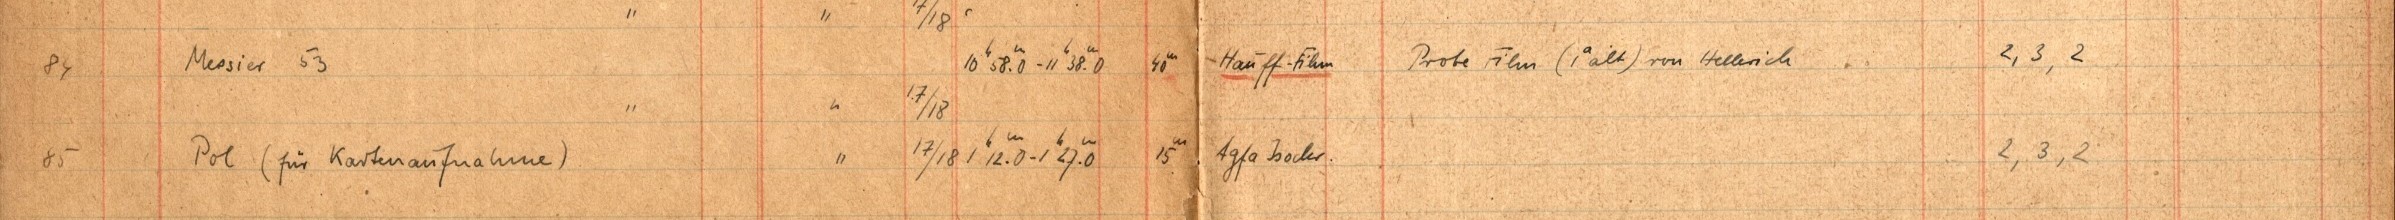 " " 17/18
84 Messier 53 10h 58.m0 - 11h 38.m0 40m Hauff-Film Probe Film (1 a alt) von Hellerich 2, 3, 2
" " 17/18
85 Pol (für Kartenaufnahme) " 17/18 1h 12.m0 - 1h 27.m0 15m Agfa Isochr. 2, 3, 2